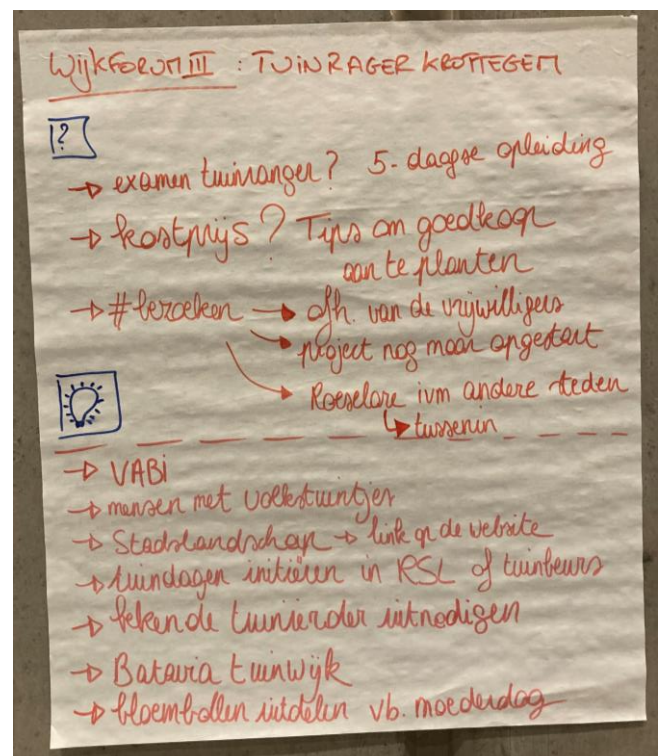 WijkFORUM III : TUINRAGER KROTTEGEM
?
→ examen tuinranger? 5-daagse opleiding
→ kostprijs? Tips om goedkoop
aan te planten
→ #bezoeken → afh. van de vrijwilligers
→ project nog maar opgestart
→ Roeselare ivm andere steden
↳ tussenin
→ VABi
→ mensen met volkstuintjes
→ Stadslandschap → link op de website
→ tuindagen initiëren in RSL of tuinbeurs
→ bekende tuinierder uitnodigen
→ Batavia tuinwijk
→ bloembollen uitdelen vb. moederdag